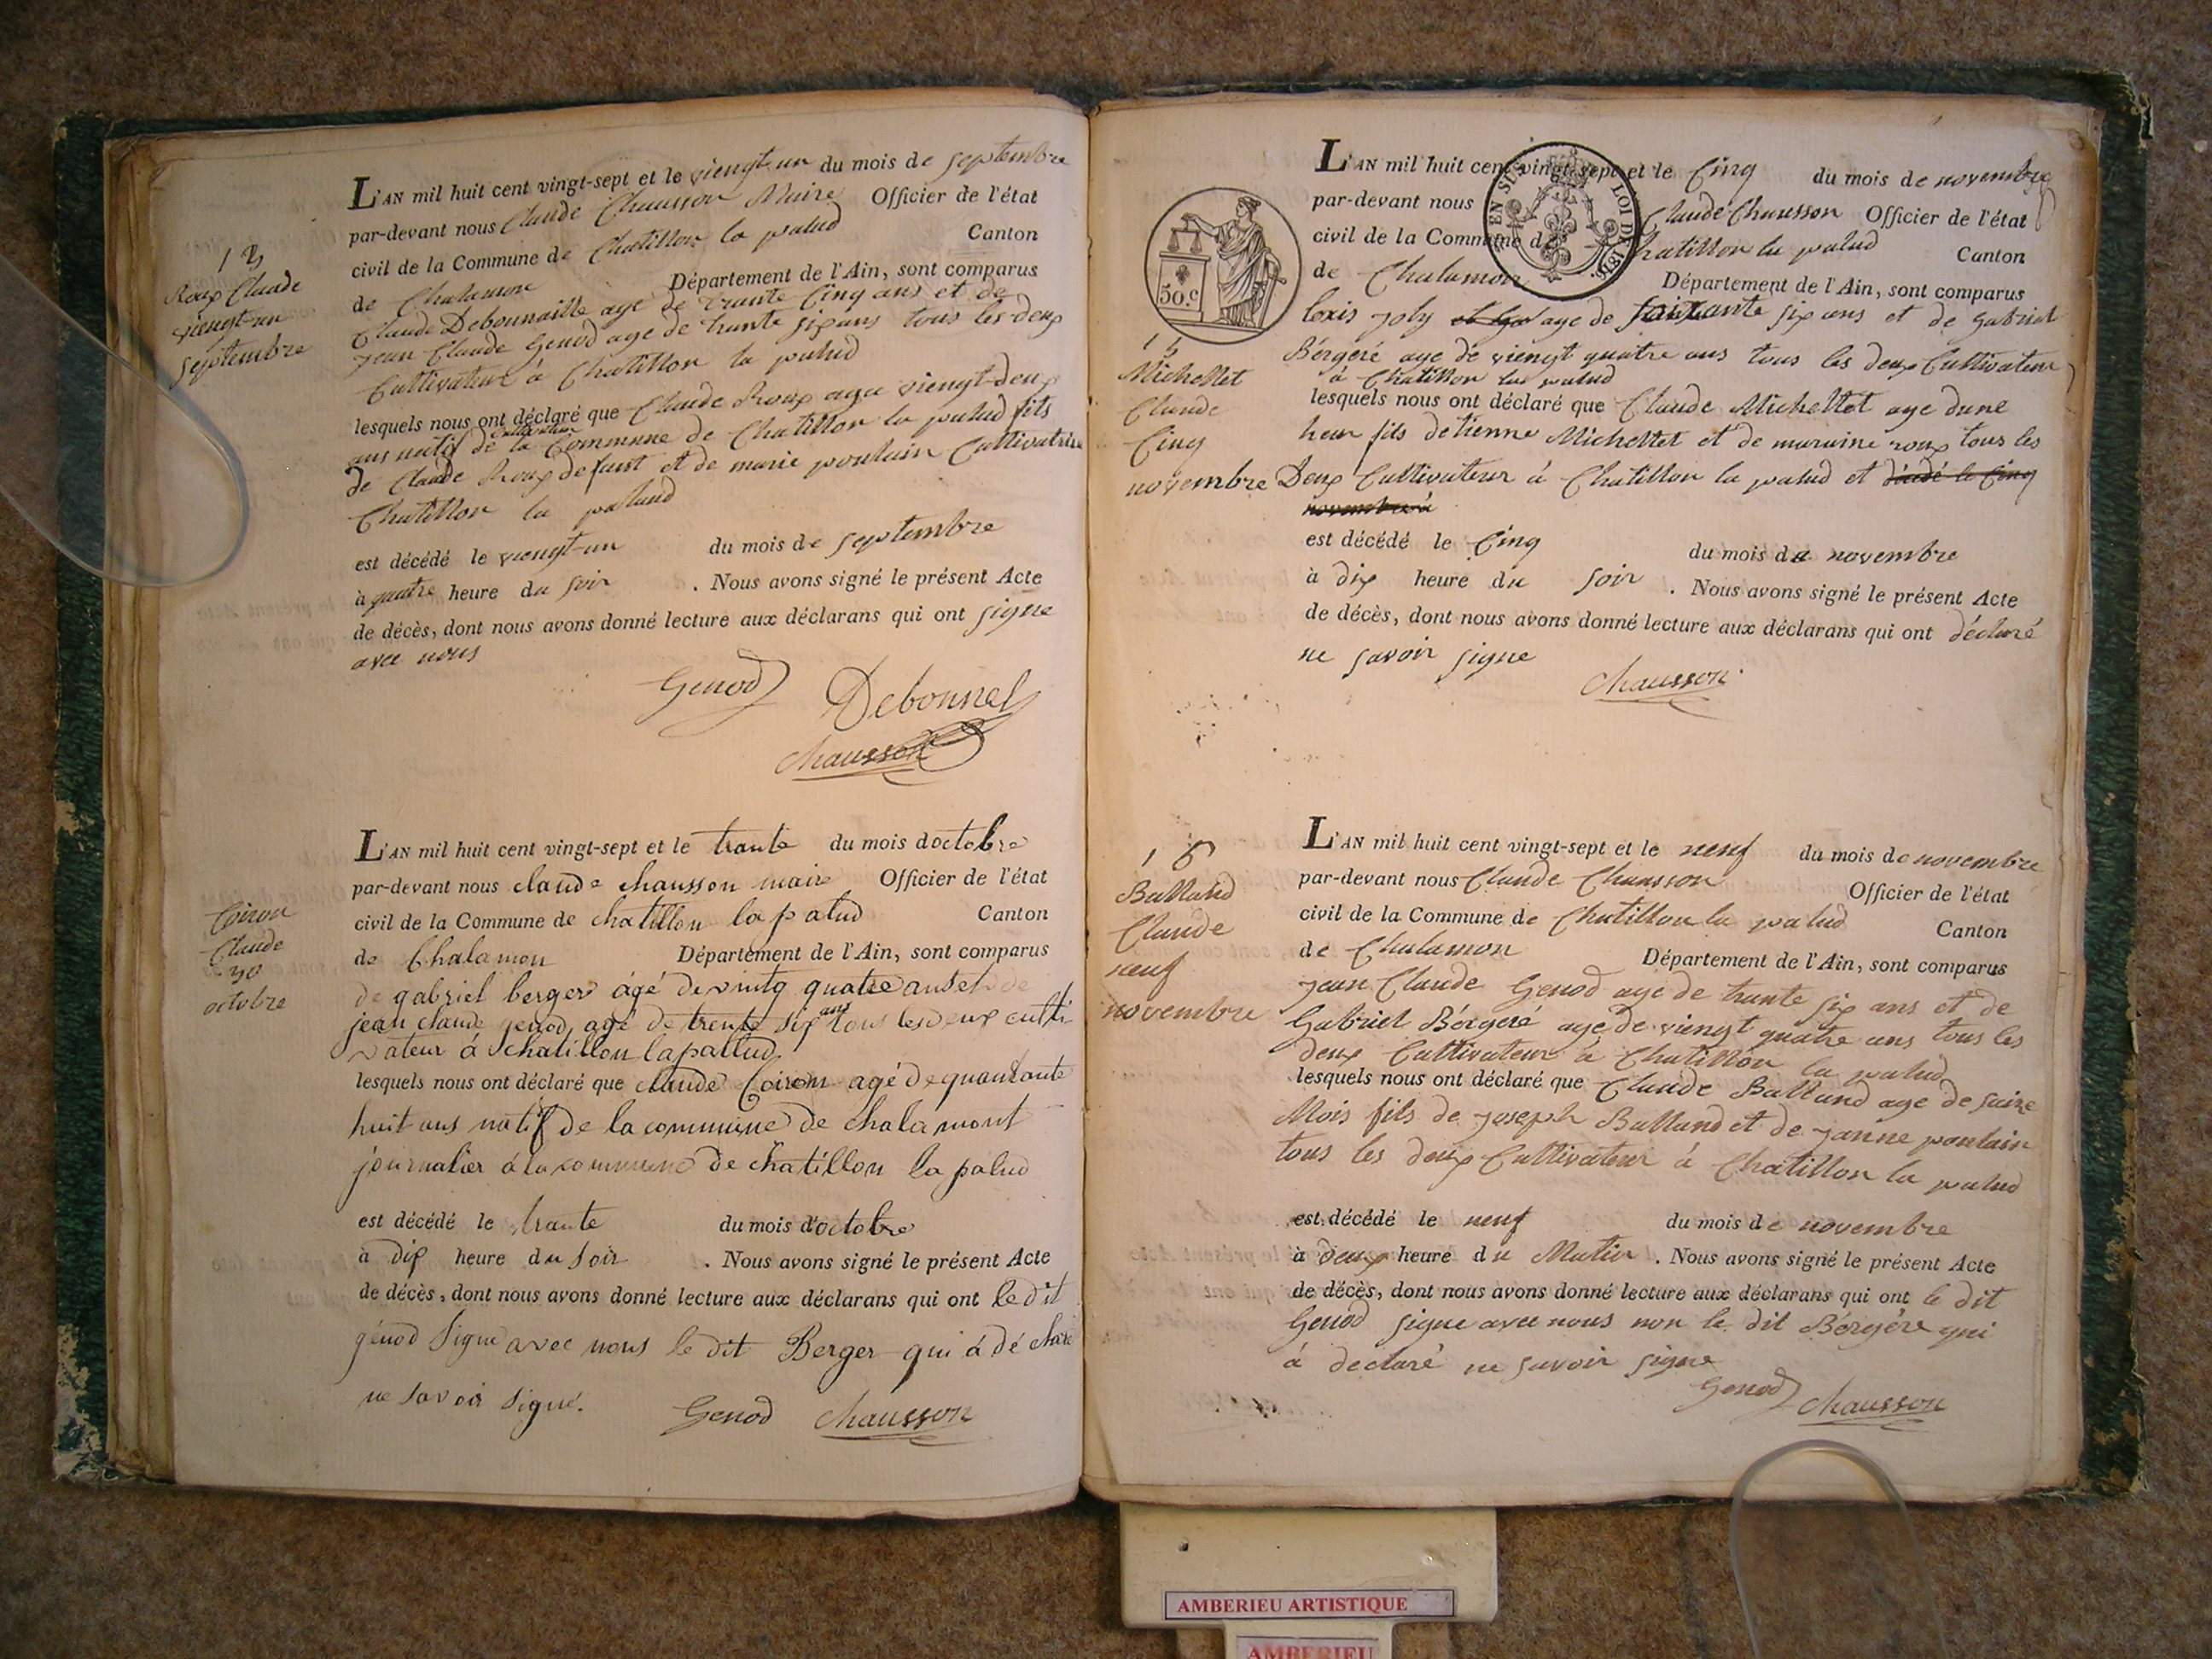 13
Roux Claude
viengt-un
septembre
L'AN mil huit cent vingt-sept et le viengt-un du mois de septembre
par-devant nous Claude Chausson Maire Officier de l'état
civil de la Commune de Chatillon la palud Canton
de Chalamon Département de l'Ain, sont comparus
Claude Debounaille age de trante Cinq ans et de
jean Claude Genod age de trante six ans tous les deux
Cultivateur à Chatillon la palud
lesquels nous ont déclaré que Claude Roux agee viengt-deux
Cultivateur
ans natif de la Commune de Chatillon la palud fils
de Claude Roux defunt et de marie poulain Cultivatrise
Chatillon la palaud
est décédé le viengt-un du mois de septembre
à quatre heure du soir . Nous avons signé le présent Acte
de décès, dont nous avons donné lecture aux déclarans qui ont signe
avec nous
Genod Debonnel
Chausson
Coiron
Claude
30
octobre
L'AN mil huit cent vingt-sept et le trante du mois doctobre
par-devant nous claude chausson maire Officier de l'état
civil de la Commune de chatillon la palud Canton
de Chalamon Département de l'Ain, sont comparus
de gabriel berger âgé de vintg quatre ans et de
jean claude genod agé de trente six ans tous les deux culti
vateur á chatillon la pallud
lesquels nous ont déclaré que claude Coiron agé de quarante
huit ans natif de la commune de chalamont
journalier á la commune de chatillon la palud
est décédé le trante du mois d'octobre
à dix heure du soir . Nous avons signé le présent Acte
de décès, dont nous avons donné lecture aux déclarans qui ont le dit
génod signe avec nous le dit Berger qui á dé claré
ne savoir signé.
Genod Chausson
EN SUS LOI DE 1816.
50.c
15
Michellet
Claude
Cinq
novembre
L'AN mil huit cent vingt-sept et le Cinq du mois de novembre
par-devant nous Claude Chausson Officier de l'état
civil de la Commune de Chatillon la palud Canton
de Chalamon Département de l'Ain, sont comparus
Loxis joly age de soixante six ans et de gabriel
Bérgeré age de viengt quatre ans tous les deux Cultivateur
à Chatillon la palud
lesquels nous ont déclaré que Claude Michellet age dune
heur fils detienne Michellet et de roux tous les
Deux Cultivateur á Chatillon la palud et décédé le Cinq
novembre á
est décédé le Cinq du mois de novembre
à dix heure du soir . Nous avons signé le présent Acte
de décès, dont nous avons donné lecture aux déclarans qui ont déclaré
ne savoir signe
Chausson
16
Balland
Claude
neuf
novembre
L'AN mil huit cent vingt-sept et le neuf du mois de novembre
par-devant nous Claude Chausson Officier de l'état
civil de la Commune de Chatillon la palud Canton
de Chalamon Département de l'Ain, sont comparus
jean Claude Genod age de trante six ans et de
Gabriel Bérgeré age de viengt quatre ans tous les
deux Cultivateur à Chatillon la palud
lesquels nous ont déclaré que Claude Balland age de saize
Mois fils de joseph Balland et de janne poulain
tous les deux Cultivateur á Chatillon la palud
est décédé le neuf du mois de novembre
à deux heure du Matin . Nous avons signé le présent Acte
de décès, dont nous avons donné lecture aux déclarans qui ont le dit
Genod signe avec nous non le dit Bérgére qui
á declaré ne savoir signe
Genod Chausson
AMBERIEU ARTISTIQUE
AMBERIEU